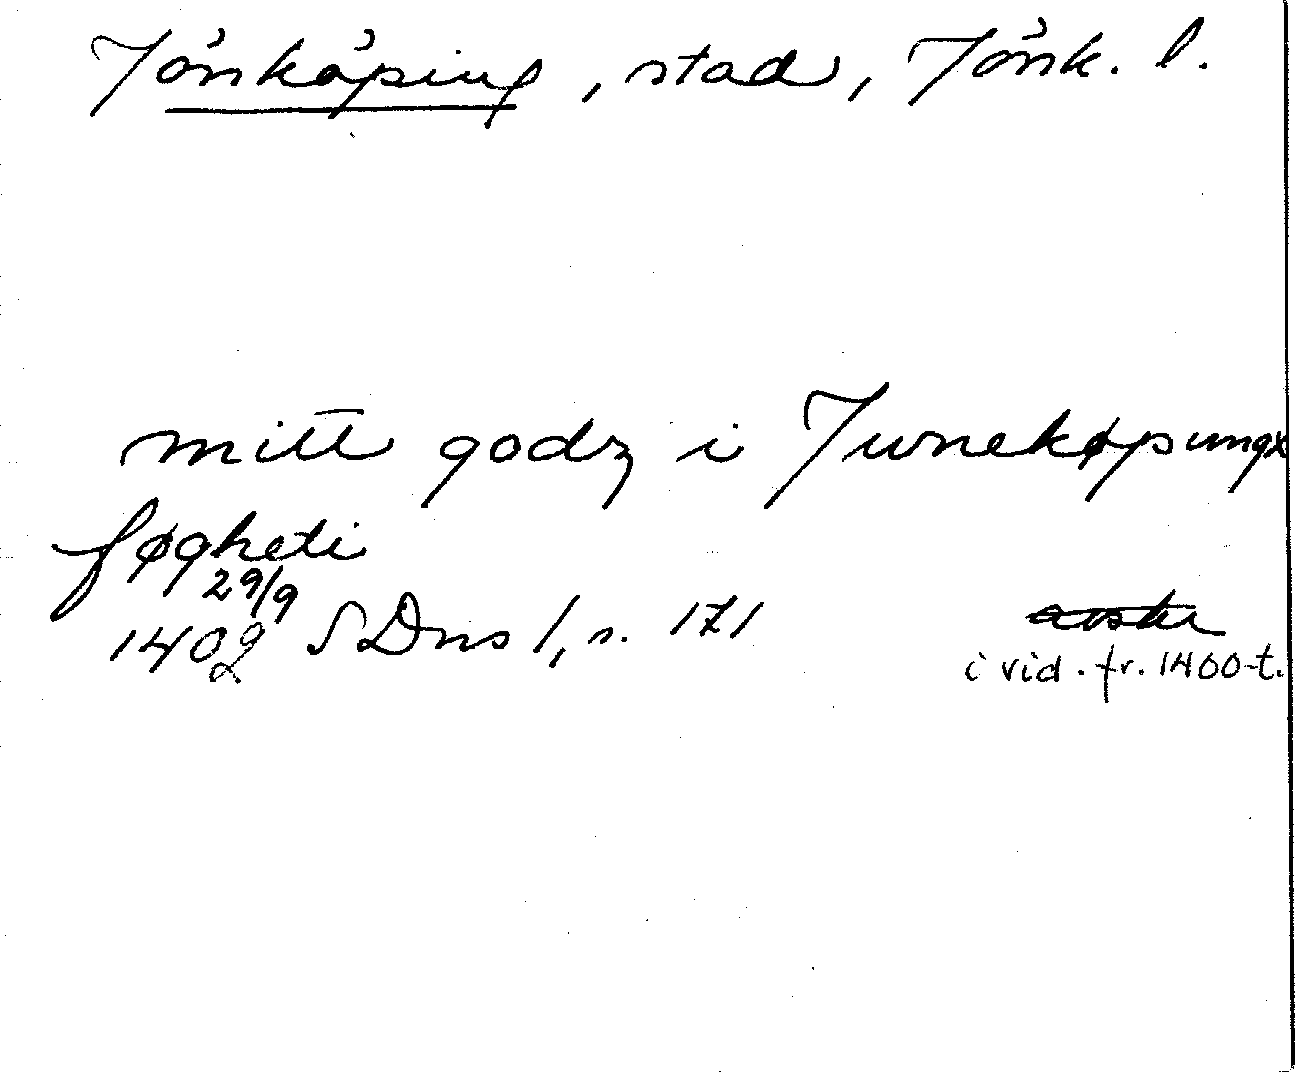 Jönköping, stad, Jönk. l.
mitt godz i Juneköpungx
føgheti
29/9
1402 SDns 1, s. 171
i vid. fr. 1400-t.